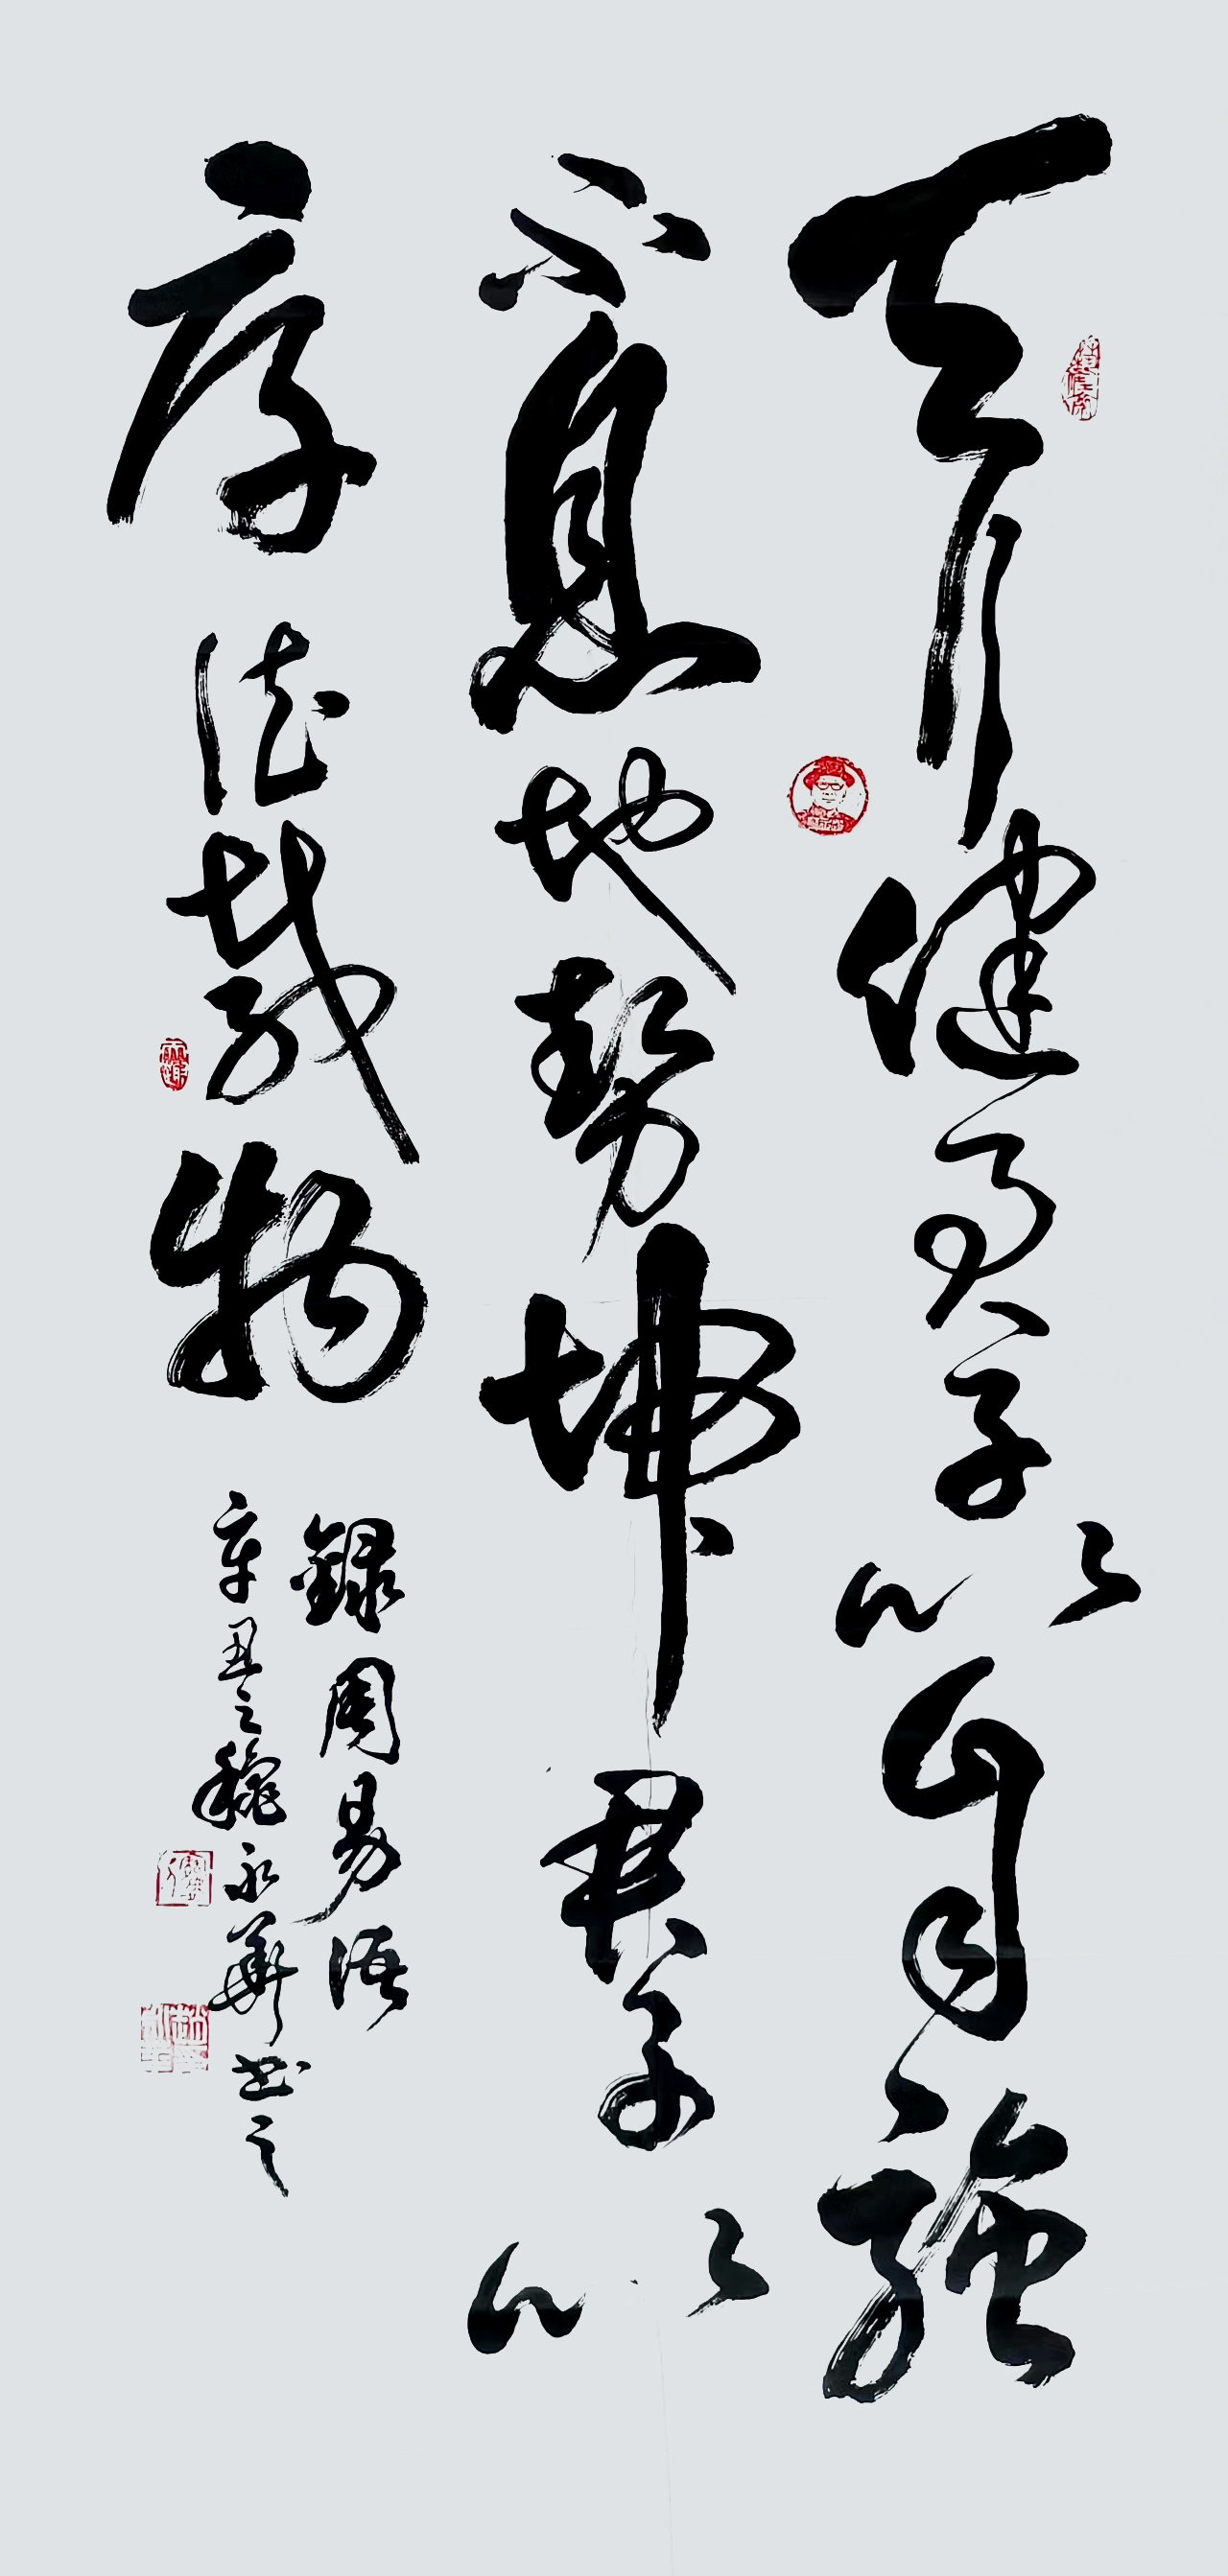 天行健君子以自強
不息地勢坤君子以
厚德載物
錄周易語
辛丑之穐永華書之